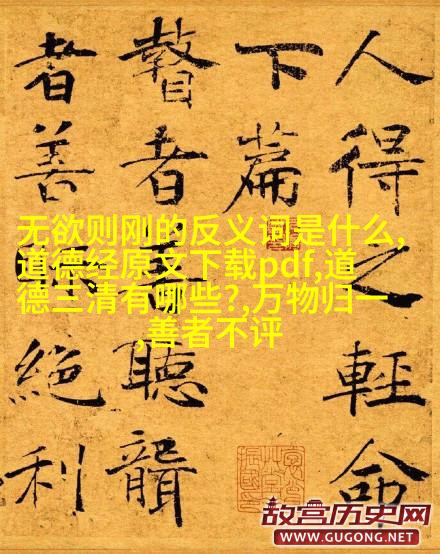 人得之輕命
下篇
瞽者聽聾
者善絕利
无欲则刚的反义词是什么,
道德经原文下载pdf,道
德三清有哪些?,万物归一
,善者不评
故宫历史网
WWW.GUGONG.NET